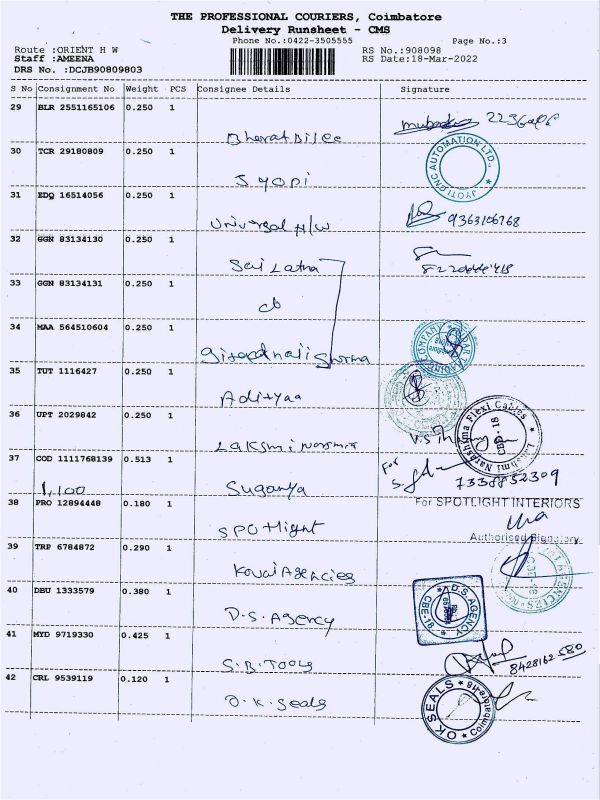 THE PROFESSIONAL COURIERS, Coimbatore
Delivery Runsheet - CMS
Phone No.:0422-3505555 Page No.:3
Route :ORIENT H W RS No.:908098
Staff :AMEENA RS Date:18-Mar-2022
DRS No. :DCJB90809803
S No Consignment No Weight PCS Consignee Details Signature
29 BLR 2551165106 0.250 1
Bharat Dilee
30 TCR 29180809 0.250 1
JYOTI CNC AUTOMATION LTD.
31 EDQ 16514056 0.250 1
Universal H/W 9363106768
32 GGN 83134130 0.250 1
Sai Latha
33 GGN 83134131 0.250 1
34 MAA 564510604 0.250 1
Sharma
35 TUT 1116427 0.250 1
Adityaa
36 UPT 2029842 0.250 1
Lakshmi Narasimha Flexi Cables
CBE-18
Laksmi
37 COD 1111768139 0.513 1
For
1,100 Suganya 7338852309
38 PRO 12894448 0.180 1 For SPOTLIGHT INTERIORS
Spotlight
Authorised Signatory
39 TRP 6784872 0.290 1
Kovai Agencies
40 DBU 1333579 0.380 1
D.S. AGENCY
CBE-18
D.S. Agency
41 MYD 9719330 0.425 1
S.B. Tools 8428162580
42 CRL 9539119 0.120 1
O.K. Seals
OK SEALS
Coimbatore-18